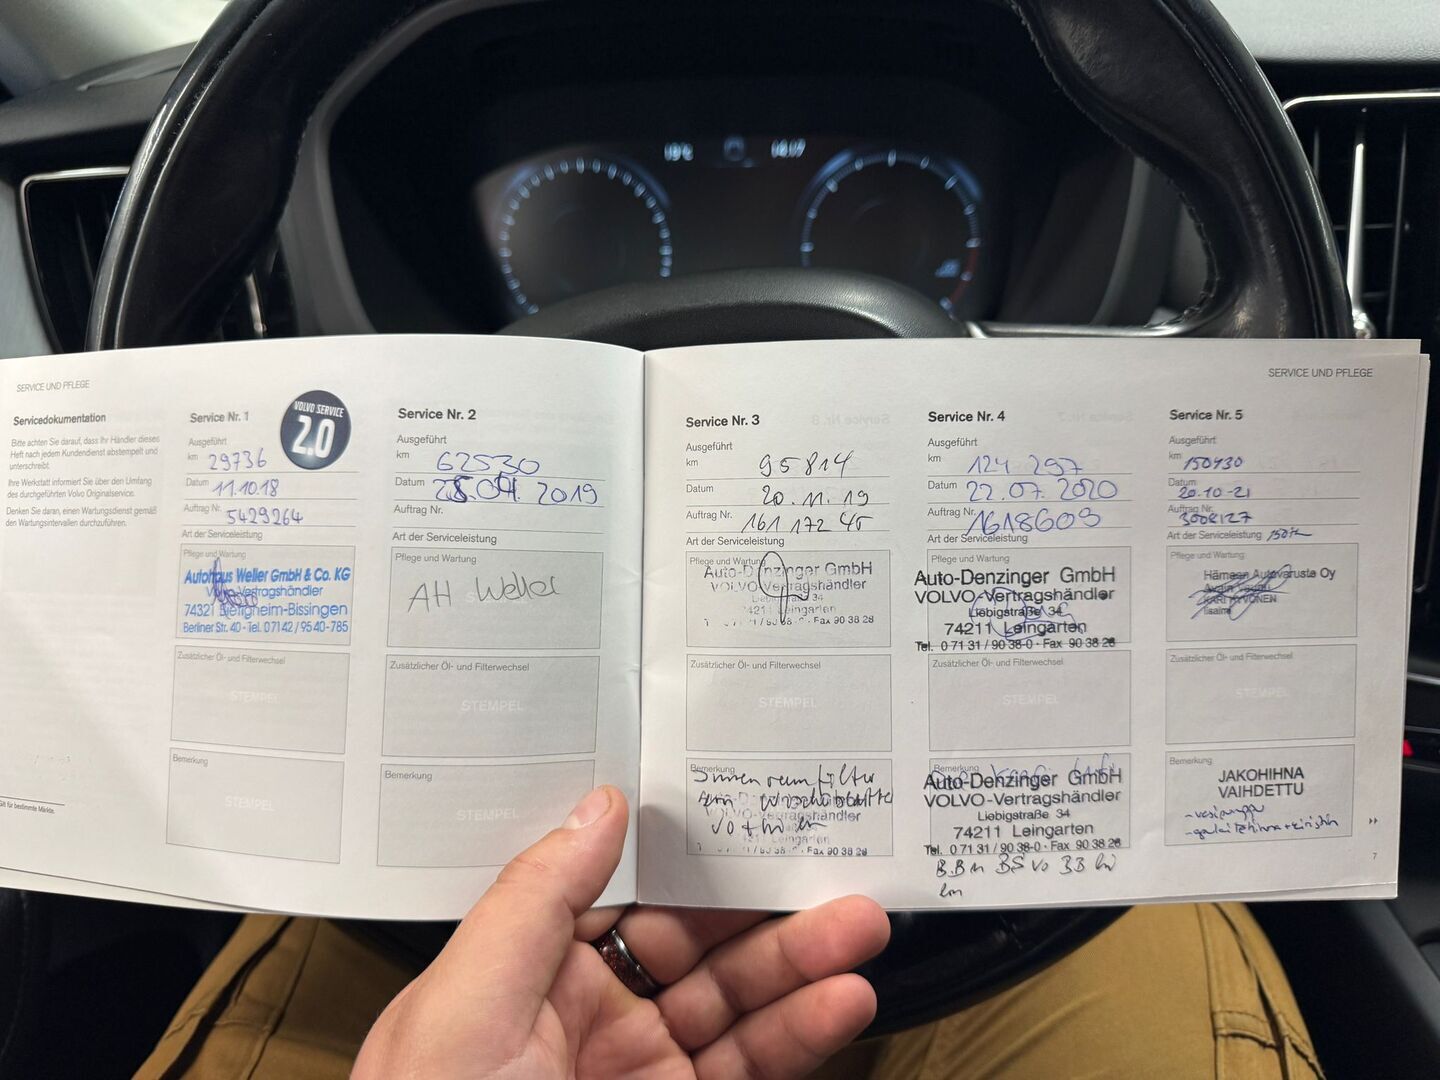 19°C
14:17
SERVICE UND PFLEGE
Servicedokumentation
Bitte achten Sie darauf, dass Ihr Händler dieses
Heft nach jedem Kundendienst abstempelt und
unterschreibt.
Ihre Werkstatt informiert Sie über den Umfang
des durchgeführten Volvo Originalservice.
Denken Sie daran, einen Wartungsdienst gemäß
den Wartungsintervallen durchzuführen.
für bestimmte Märkte.
Service Nr. 1
VOLVO SERVICE
2.0
Ausgeführt
km 29736
Datum 11.10.18
Auftrag Nr. 5429264
Art der Serviceleistung
Pflege und Wartung
Autohaus Weller GmbH & Co. KG
Volvo-Vertragshändler
74321 Bietigheim-Bissingen
Berliner Str. 40 - Tel. 0 71 42 / 95 40-785
Zusätzlicher Öl- und Filterwechsel
STEMPEL
Bemerkung
STEMPEL
Service Nr. 2
Ausgeführt
km 62530
Datum 25.04.2019
Auftrag Nr.
Art der Serviceleistung
Pflege und Wartung
AH Weller
Zusätzlicher Öl- und Filterwechsel
STEMPEL
Bemerkung
STEMPEL
SERVICE UND PFLEGE
Service Nr. 3
Ausgeführt
km 95814
Datum 20.11.19
Auftrag Nr. 161 172 45
Art der Serviceleistung
Pflege und Wartung
Auto-Denzinger GmbH
VOLVO-Vertragshändler
Liebigstraße 34
74211 Leingarten
Fax 90 38 28
Zusätzlicher Öl- und Filterwechsel
STEMPEL
Bemerkung
Innenraumfilter
Wischblätter
VOLVO-Vertragshändler
Leingarten
Fax 90 38 28
Service Nr. 4
Ausgeführt
km 124 297
Datum 22.07.2020
Auftrag Nr. 1618609
Art der Serviceleistung
Pflege und Wartung
Auto-Denzinger GmbH
VOLVO-Vertragshändler
Liebigstraße 34
74211 Leingarten
Tel. 0 71 31 / 90 38-0 · Fax 90 38 28
Zusätzlicher Öl- und Filterwechsel
STEMPEL
Bemerkung
Auto-Denzinger GmbH
VOLVO-Vertragshändler
Liebigstraße 34
74211 Leingarten
Tel. 0 71 31 / 90 38-0 · Fax 90 38 28
Service Nr. 5
Ausgeführt
km 150430
Datum 20-10-21
Auftrag Nr. 3008127
Art der Serviceleistung
Pflege und Wartung
Hämeen Autovaruste Oy
Iisalmi
Zusätzlicher Öl- und Filterwechsel
STEMPEL
Bemerkung
JAKOHIHNA
VAIHDETTU
-vesipumppu
7